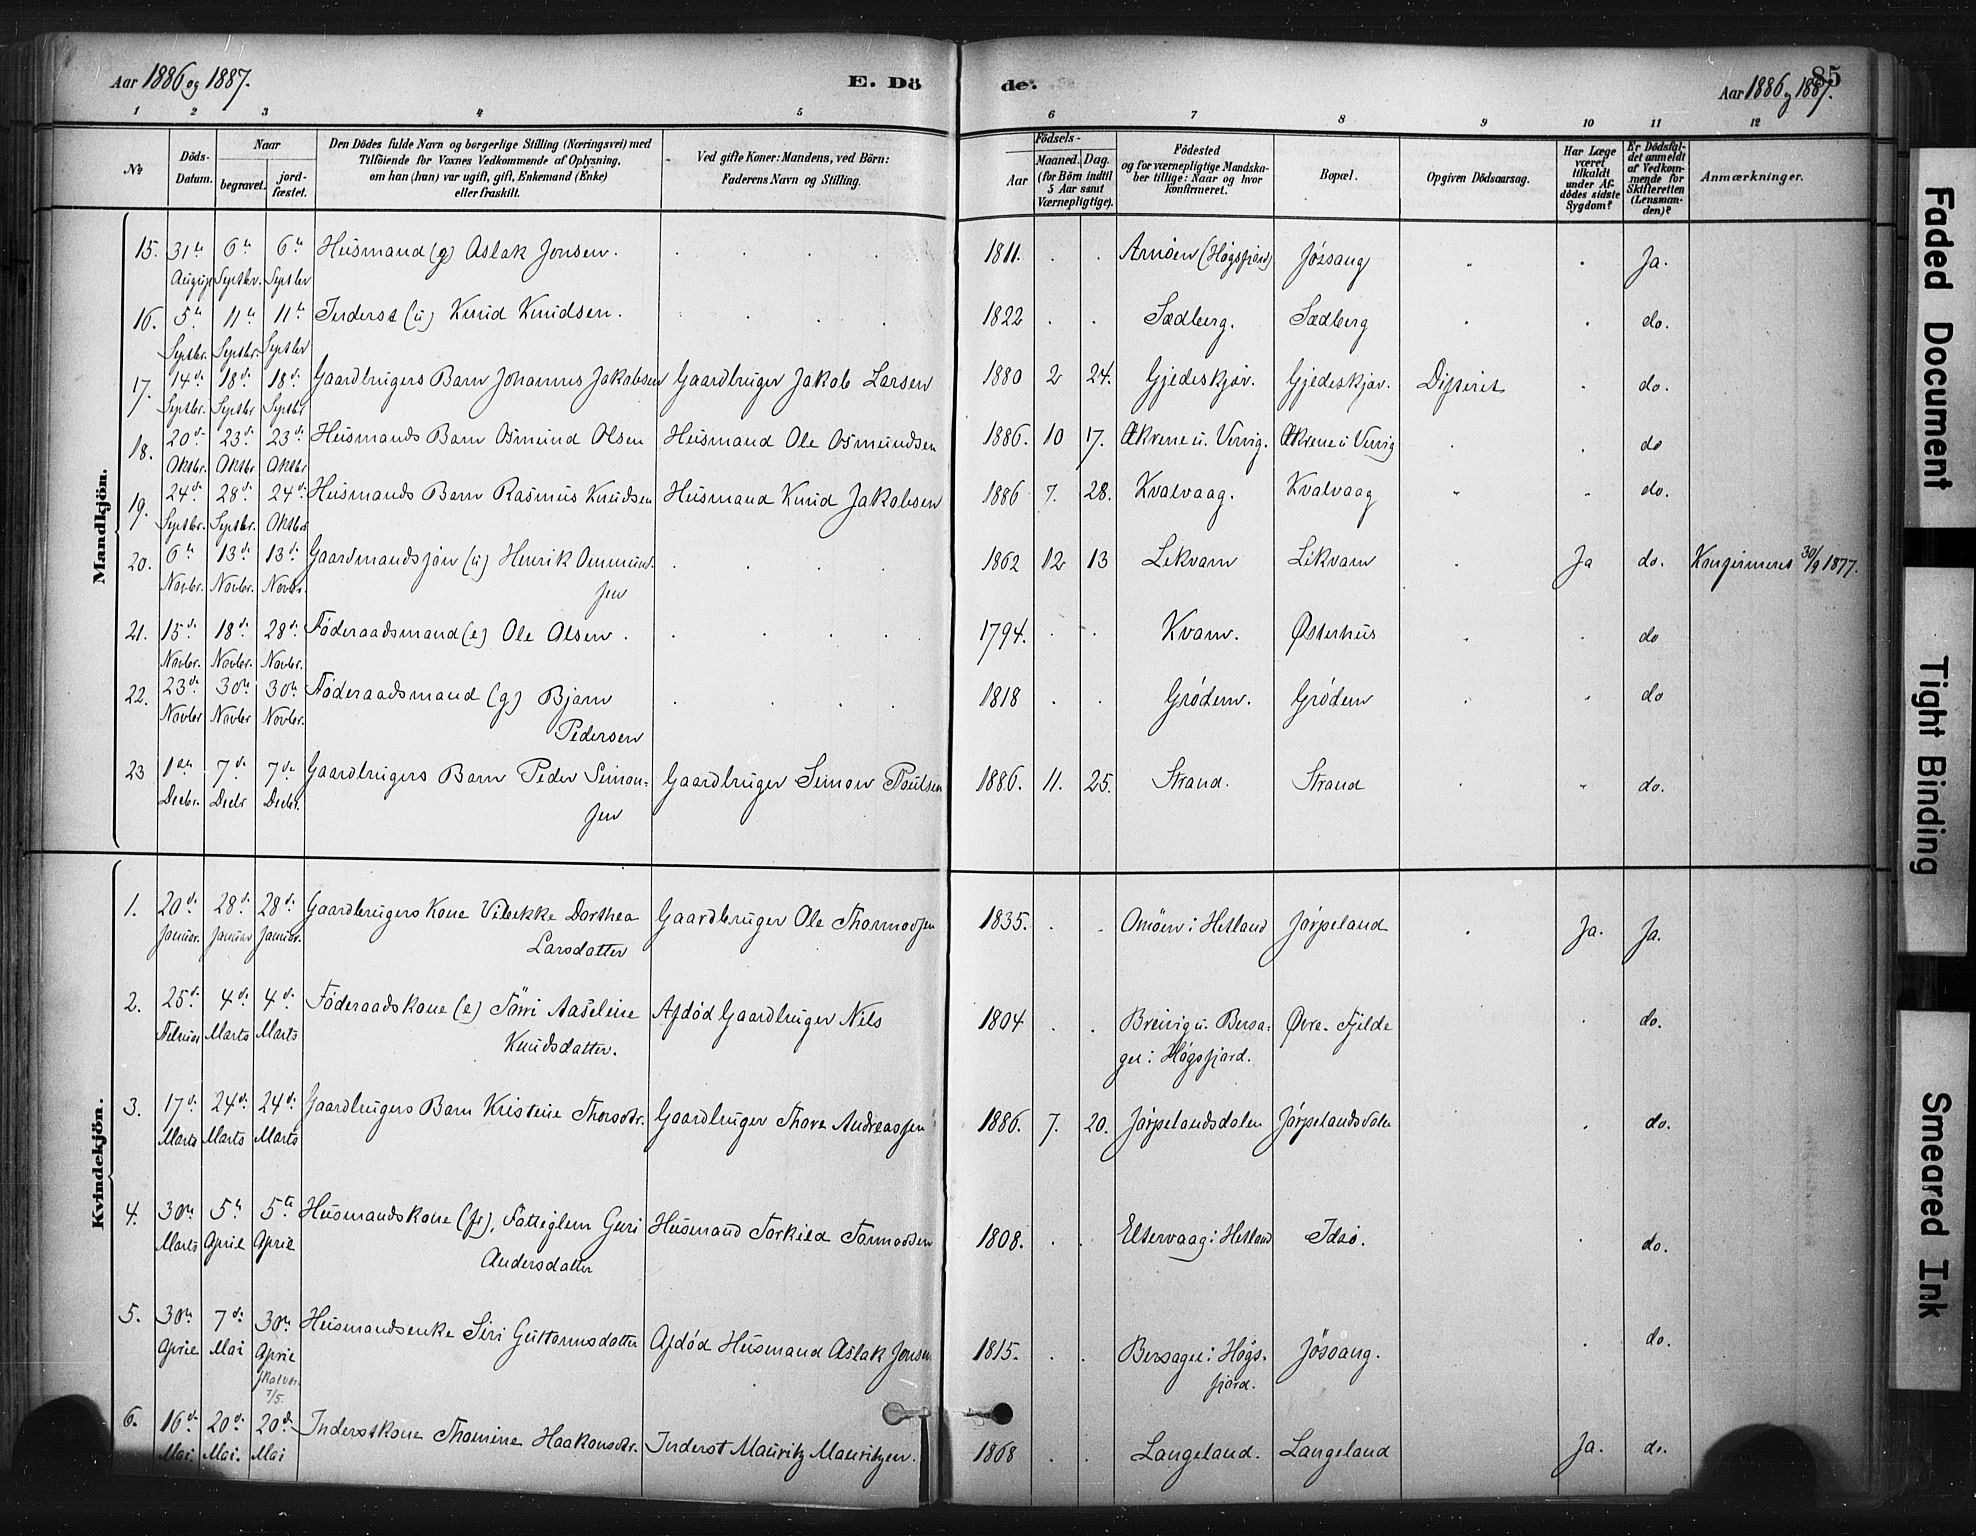 Aar 1886 og 1887.
E. Dö
de.
85
Aar 1886 og 1887.
1 2 3 4 5 6 7 8 9 10 11 12
No
Döds-Datum.
Naar
begravet.
jord-fæstet.
Den Dödes fulde Navn og borgerlige Stilling (Næringsvei) med
Tilföiende for Voxnes Vedkommende af Oplysning,
om han (hun) var ugift, gift, Enkemand (Enke)
eller fraskilt.
Ved gifte Koner: Mandens, ved Börn:
Faderens Navn og Stilling.
Födsels-
Aar
Maaned. Dag.
(for Börn indtil
5 Aar samt
Værnepligtige).
Födested
og for værnepligtige Mandska-
ber tillige: Naar og hvor
konfirmeret.
Bopæl.
Opgiven Dödsaarsag.
Har Læge
været
tilkaldt
under Af-
dödes sidste
Sygdom?
Er Dödsfal-
det anmeldt
af Vedkom-
mende for
Skifteretten
(Lensman-
den)?
Anmærkninger.
Mandkjön.
15. 31te August 6te Septbr. 6te Septbr Husmand (g) Aslak Jonsen. 1811. Arnöen (Høgsfjord) Jøssang Ja.
16. 5te Septbr. 11te Septbr. 11te Septbr Inderst (u) Knud Knudsen. 1822 Sædberg. Sædberg do.
17. 14de Septbr. 18de Septbr 18de Septbr Gaardbrugers Barn Johannes Jakobsen Gaardbruger Jakob Larsen 1880 2 24. Gjedeskjær. Gjedeskjær. Difterit do.
18. 20de Oktbr. 23de Oktbr 23de Oktbr Husmands Barn Osmund Olsen Husmand Ole Osmundsen 1886. 10 17. Ækrene u. Vervig. Ækrene u Vervig do
19. 24de Septbr. 28de Septbr. 24de Oktbr Husmands Barn Rasmus Knudsen Husmand Knud Jakobsen 1886 7. 28. Kvalvaag. Kvalvaag do.
20. 6te Novbr. 13de Novbr. 13de Novbr. Gaardmandssøn (u) Henrik Ommund-
sen 1862 12 13 Lekvam Lekvam Ja do. Konfirmeret 30/9 1877.
21. 15de Novbr. 18de Novbr. 28de Novbr. Føderaadsmand (e) Ole Olsen. 1794. Kvam. Østerhus do
22. 23de Novbr 30te Novbr 30te Novbr. Føderaadsmand (g) Bjørn
Pedersen 1818 Grødem. Grødem do
23 1ste Decbr. 7de Decbr 7de Decbr. Gaardbrugers Barn Peder Simon-
sen Gaardbruger Simon Poulsen 1886. 11. 25. Strand. Strand do.
Kvindekjön.
1. 20de Januar. 28de Januar 28de Januar. Gaardbrugers Kone Vibekke Dorthea
Larsdatter Gaardbruger Ole Thormodsen 1835. Omöen i Hetland Jørpeland Ja. Ja.
2. 25de Februar 4de Marts 4de Marts Føderaadskone (e) Aaselene
Knudsdatter. Afdød Gaardbruger Nils 1804 Breivig u. Bersa-
gel i Høgsfjord. Øvre. Fjelde do.
3. 17de Marts 24de Marts 24de Marts Gaardbrugers Barn Kristine Thorsdtr. Gaardbruger Thore Andreassen 1886. 7. 20. Jørpelandsdalen Jørpelandsdalen do.
4. 30te Marts 5te April 5te April Husmandskone (fr), Fattiglem Guri
Andersdatter Husmand Torkild Tormodsen 1808. Eltervaag i Hetland Idsö. do.
5. 30te April 7de Mai 30te April
7/5. Husmandsenke Siri Guttormsdatter Afdød Husmand Aslak Jonsen 1815. Bersagel i Høgs-
fjord. Jøssang. do.
6. 16de Mai. 20de Mai. 20de Mai Inderstkone Thomine Haakonsdtr. Inderst Mauritz Mauritzen. 1868 Langeland. Langeland Ja. do.
Faded Document
Tight Binding
Smeared Ink